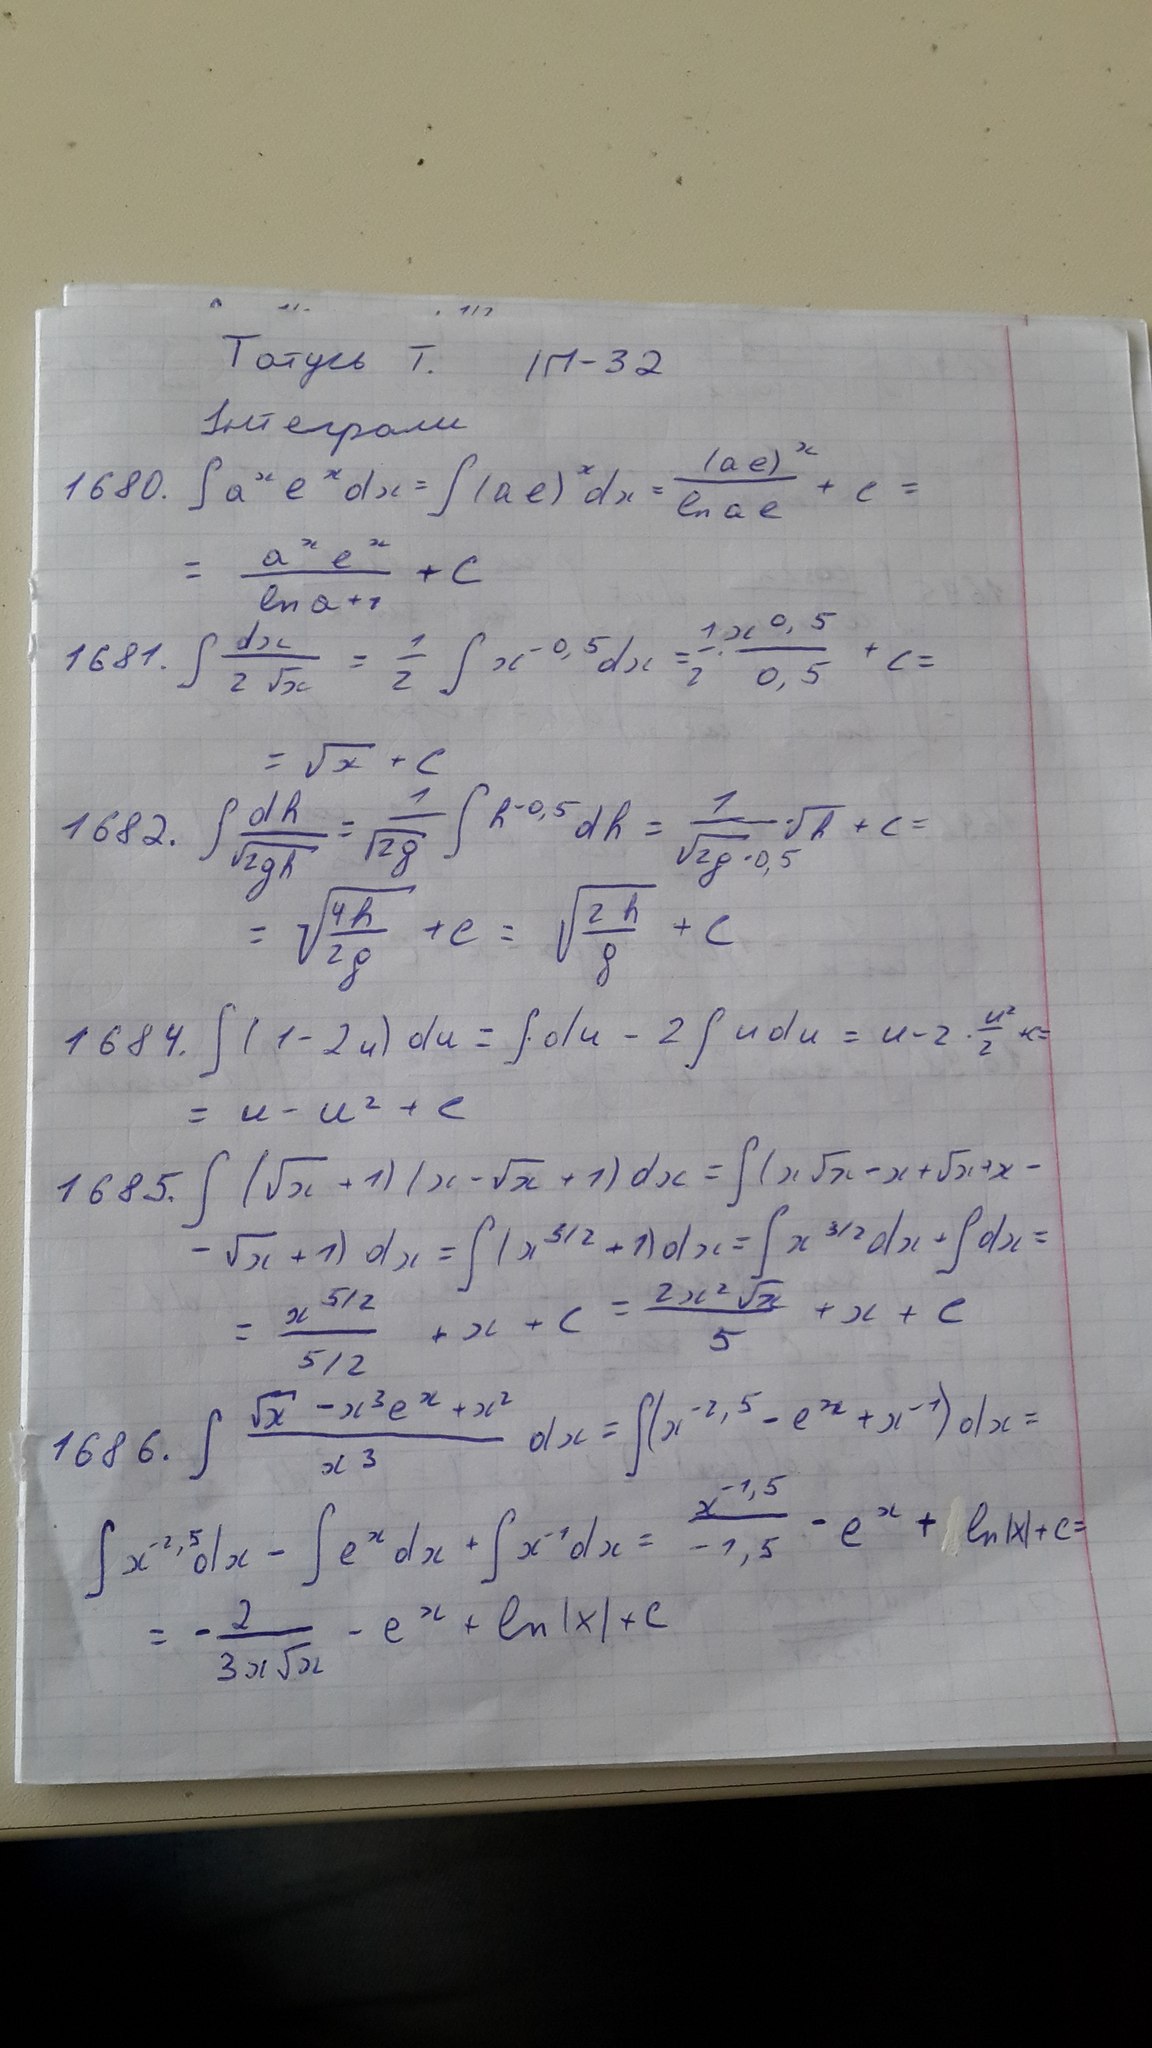 Татусь Т. ІП-32
Інтеграли
1680. ∫ a^x e^x dx = ∫ (ae)^x dx = (ae)^x / ln ae + c =
= a^x e^x / ln a+1 + C
1681. ∫ dx / 2√x = 1/2 ∫ x^-0,5 dx = 1/2 · x^0,5 / 0,5 + C =
= √x + C
1682. ∫ dh / √2gh = 1/√2g ∫ h^-0,5 dh = 1 / √2g · 0,5 · √h + C =
= √(4h/2g) + c = √(2h/g) + C
1684. ∫ (1 - 2u) du = ∫ du - 2 ∫ u du = u - 2 · u²/2 + c =
= u - u² + c
1685. ∫ (√x + 1)(x - √x + 1) dx = ∫ (x√x - x + √x + x -
- √x + 1) dx = ∫ (x^3/2 + 1) dx = ∫ x^3/2 dx + ∫ dx =
= x^5/2 / 5/2 + x + C = 2x²√x / 5 + x + C
1686. ∫ (√x - x³e^x + x²) / x³ dx = ∫ (x^-2,5 - e^x + x^-1) dx =
∫ x^-2,5 dx - ∫ e^x dx + ∫ x^-1 dx = x^-1,5 / -1,5 - e^x + ln|x| + C =
= - 2 / 3x√x - e^x + ln|x| + C